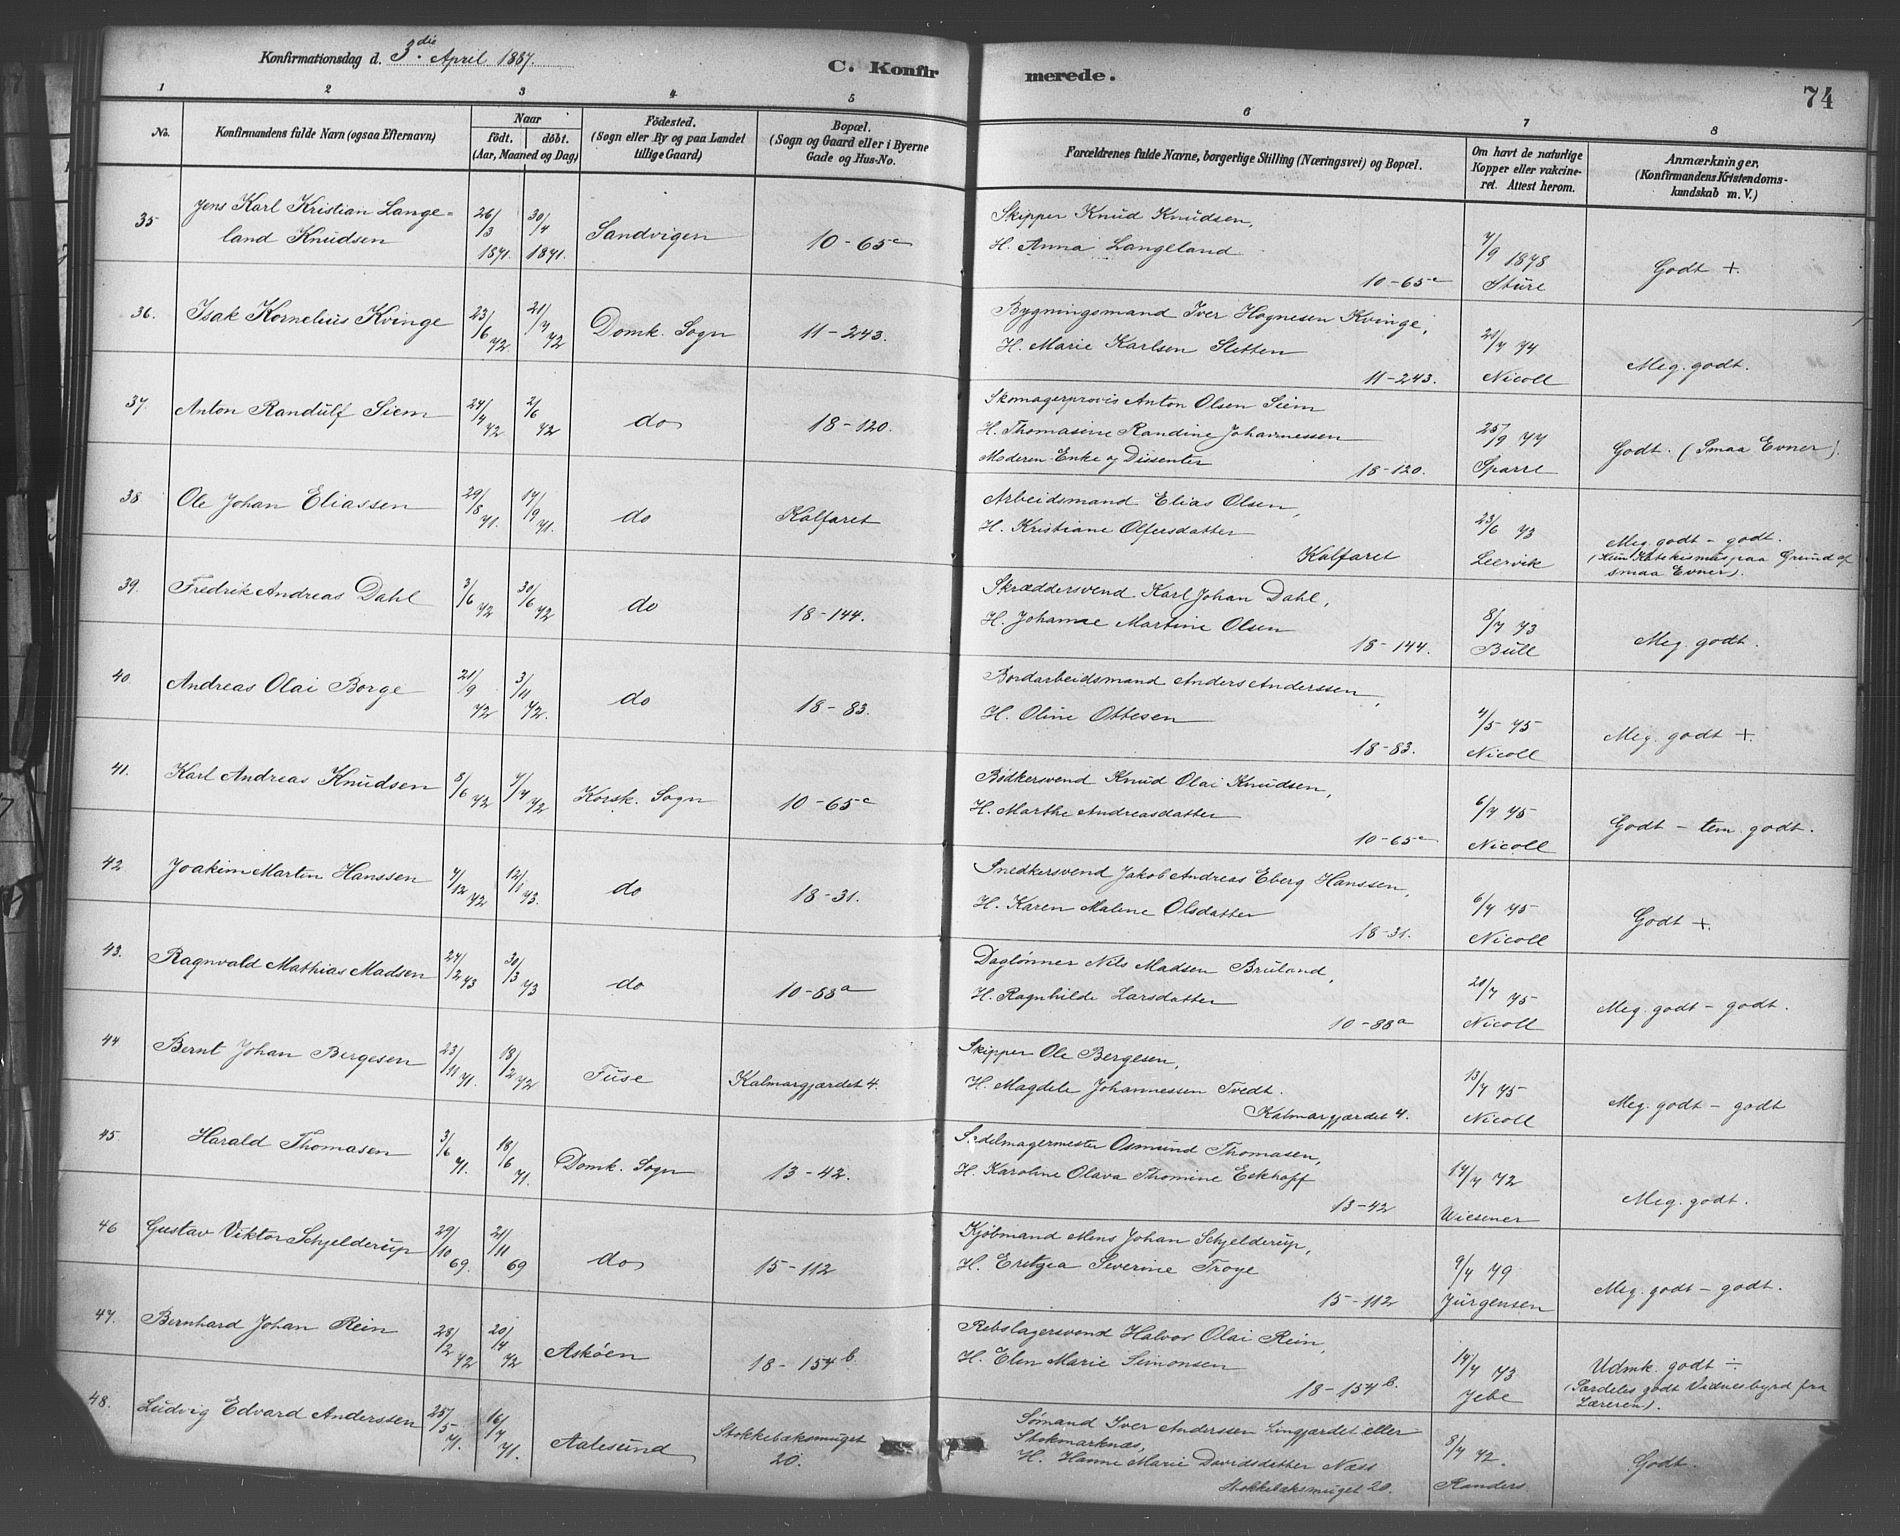 Konfirmationsdag d. 3die April 1887.
C. Konfirmerede.
74
1 2 3 4 5 6 7 8
No.
Konfirmandens fulde Navn (ogsaa Efternavn)
Naar
født. døbt.
(Aar, Maaned og Dag)
Fødested.
(Sogn eller By og paa Landet
tillige Gaard)
Bopæl.
(Sogn og Gaard eller i Byerne
Gade og Hus-No.
Forældrenes fulde Navne, borgerlige Stilling (Næringsvei) og Bopæl.
Om havt de naturlige
Kopper eller vakcine-
ret. Attest herom.
Anmærkninger.
(Konfirmandens Kristendoms-
kundskab m. V.)
35 Jens Karl Kristian Lange=
land Knudsen
26/3 1871. 30/4 1871. Sandvigen 10-65c
Skipper Knud Knudsen,
H. Anna Langeland
10-65c
7/9 1878
Sture
Godt +
36. Isak Kornelius Kvinge 23/6 72 21/7 72 Domk. Sogn 11-243.
Bygningsmand Iver Hognesen Kvinge,
H. Marie Karlsen Sletten
11-243.
21/7 74
Nicoll
Meg. godt.
37. Anton Randulf Siem 24/4 72 2/6 72 do 18-120.
Skomagerprovis Anton Olsen Siem
H. Thomasine Randine Johannessen
Moderen Enke og Dissenter
18-120.
25/9 77
Sparre
Godt. (Smaa Evner).
38 Ole Johan Eliassen 29/8 71. 17/9 71. do Kalfaret
Arbeidsmand Elias Olsen,
H. Kristiane Olfersdatter
Kalfaret
23/6 73
Leervik
Meg. godt - godt.
(Kun Katekismus paa Grund af
smaa Evner).
39. Fredrik Andreas Dahl 3/6 72 30/6 72 do 18-144.
Skræddersvend Karl Johan Dahl,
H. Johanne Martine Olsen
18-144.
8/7 73
Bull
Meg. godt.
40. Andreas Olai Borge 21/9 72 3/11 72. do 18-83.
Bordarbeidsmand Anders Anderssen,
H. Oline Ottesen
18-83.
4/5 75
Nicoll
Meg. godt +
41. Karl Andreas Knudsen 8/6 72 7/7 72 Korsk. Sogn 10-65c
Bødkersvend Knud Olai Knudsen,
H. Marthe Andreasdatter
10-65c
6/7 75
Nicoll
Godt - tem. godt.
42 Joakim Martin Hanssen 7/12 72 12/1 73. do 18-31.
Snedkersvend Jakob Andreas Eberg Hanssen,
H. Karen Malene Olsdatter
18-31.
6/7 75
Nicoll
Godt +
43. Ragnvald Mathias Madsen 24/2 73 30/3 73 do 10-88a
Daglønner Nils Madsen Bruland,
H. Ragnhilde Larsdatter
10-88a
20/7 75
Nicoll
Meg. godt - godt.
44 Bernt Johan Bergesen 23/11 71. 18/2 72 Fuse Kalmargjærdet 4.
Skipper Ole Bergesen,
H. Magdele Johannessen Tvedt.
Kalmargjærdet 4.
13/7 75
Nicoll
Meg. godt - godt
45. Harald Thomasen 3/6 71. 18/6 71. Domk. Sogn 13-42.
Sadelmagermester Osmund Thomasen,
H. Karoline Olava Thomine Eckhoff
13-42
17/7 72
Wiesener
Meg. godt.
46 Gustav Viktor Schjelderup 29/10 69. 21/11 69 do 15-112
Kjøbmand Mens Johan Schjelderup,
H. Severine Troye
15-112
9/7 79
Jürgensen
Meg. godt - godt.
47. Bernhard Johan Rein 28/2 72 20/4 72 Askøen 18-154b.
Rebslagersvend Halvor Olai Rein,
H. Elen Marie Simonsen
18-154b.
14/7 73
Jebe
Udmk. godt ÷
(Særdeles godt Vidnesbyrd fra
Læreren).
48. Ludvig Edvard Anderssen 25/5 71. 16/7 71. Aalesund Stokkebæksmuget
20.
Sømand Iver Anderssen Lingjærdet eller
Stokmarknæs,
H. Hanne Marie Davidsdatter Næss
Stokkebæksmuget 20.
8/7 72.
Randers.
Godt.